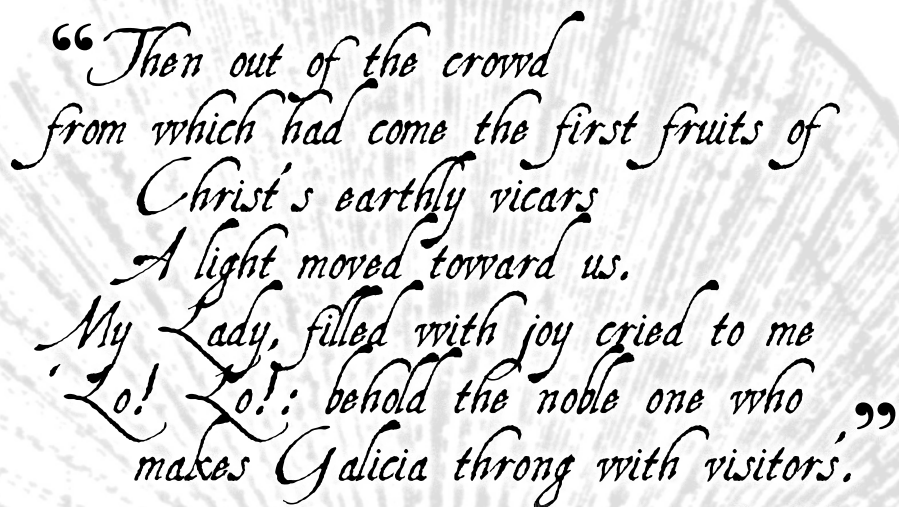 “Then out of the crowd
from which had come the first fruits of
Christ's earthly vicars
A light moved toward us.
My Lady, filled with joy cried to me
'Lo! Lo!': behold the noble one who
makes Galicia throng with visitors'.”